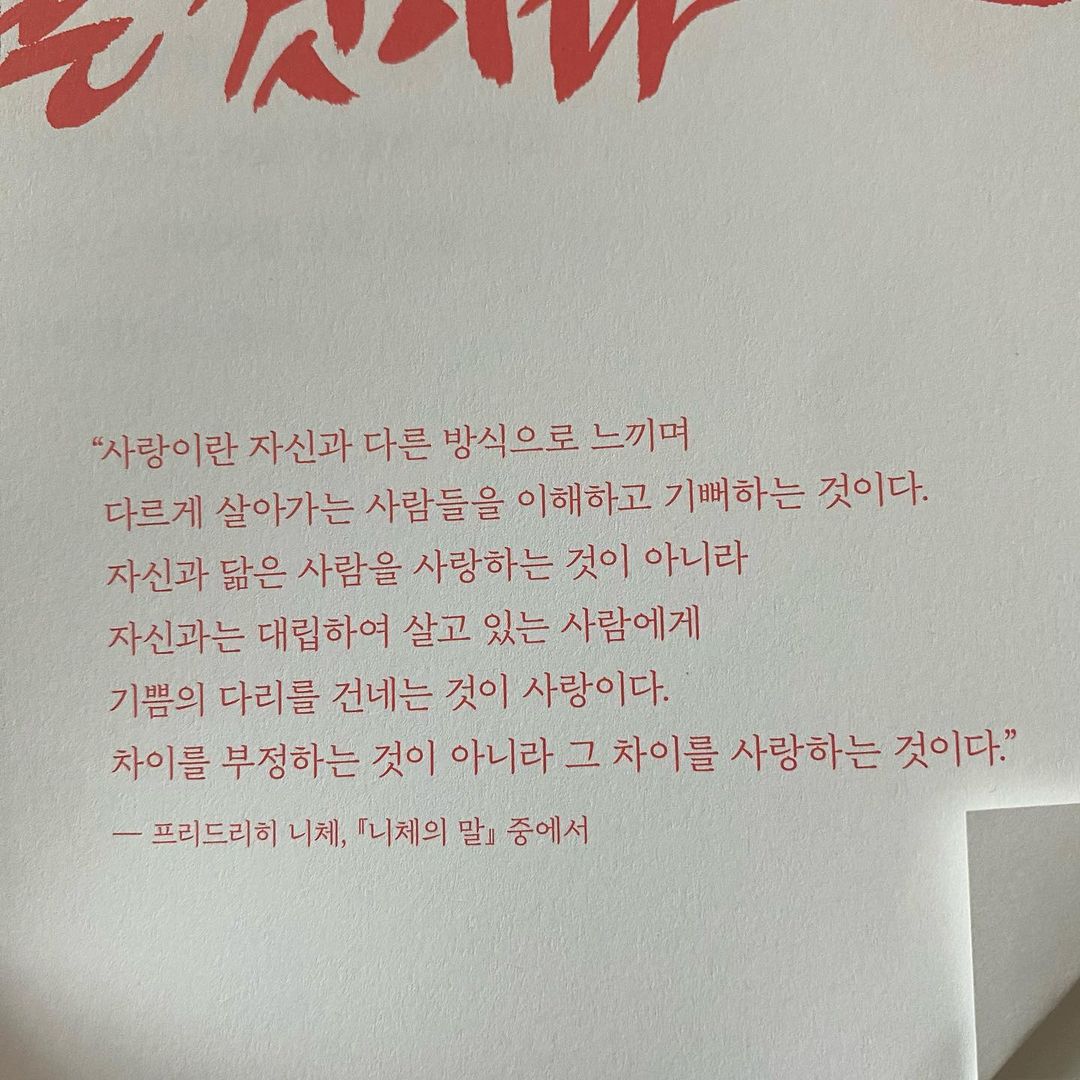 것이다
“사랑이란 자신과 다른 방식으로 느끼며
다르게 살아가는 사람들을 이해하고 기뻐하는 것이다.
자신과 닮은 사람을 사랑하는 것이 아니라
자신과는 대립하여 살고 있는 사람에게
기쁨의 다리를 건네는 것이 사랑이다.
차이를 부정하는 것이 아니라 그 차이를 사랑하는 것이다.”
— 프리드리히 니체, 『니체의 말』 중에서